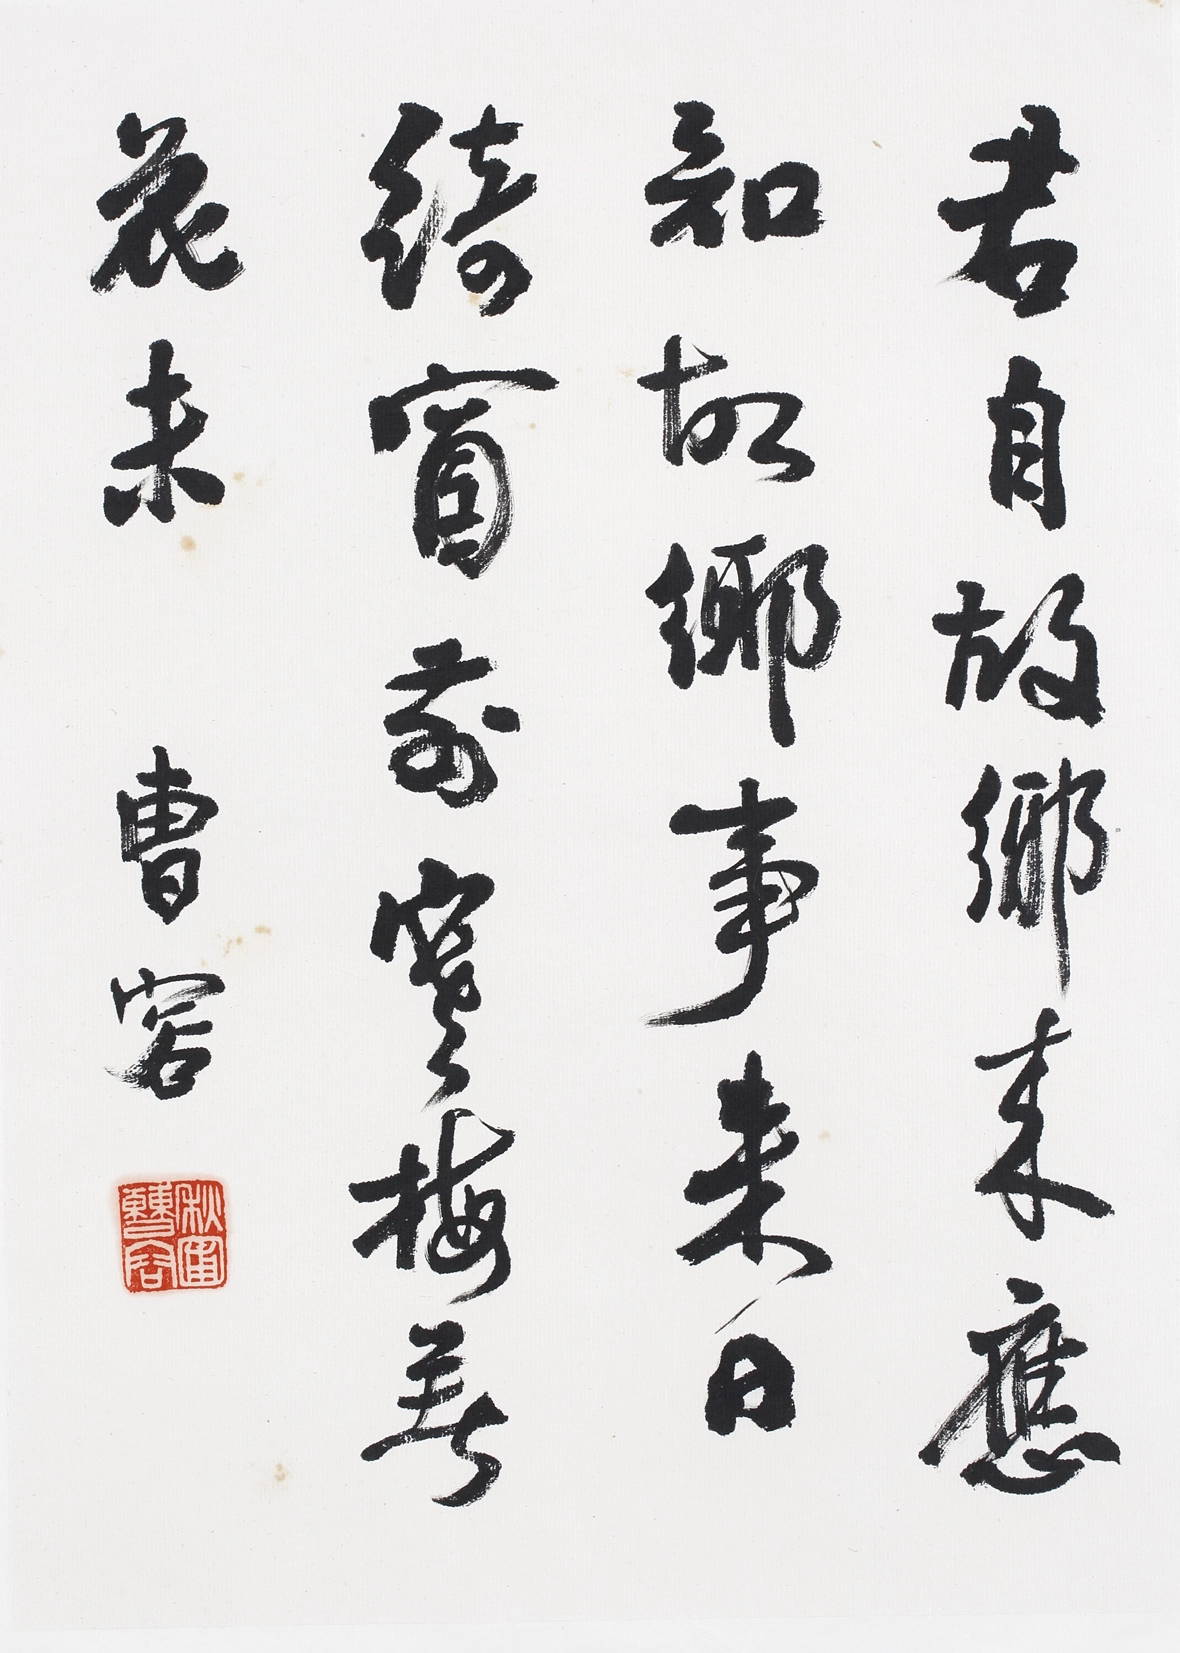 君自故鄉來應
知故鄉事來日
綺窗前寒梅著
花未 曹容
秋圃
曹容